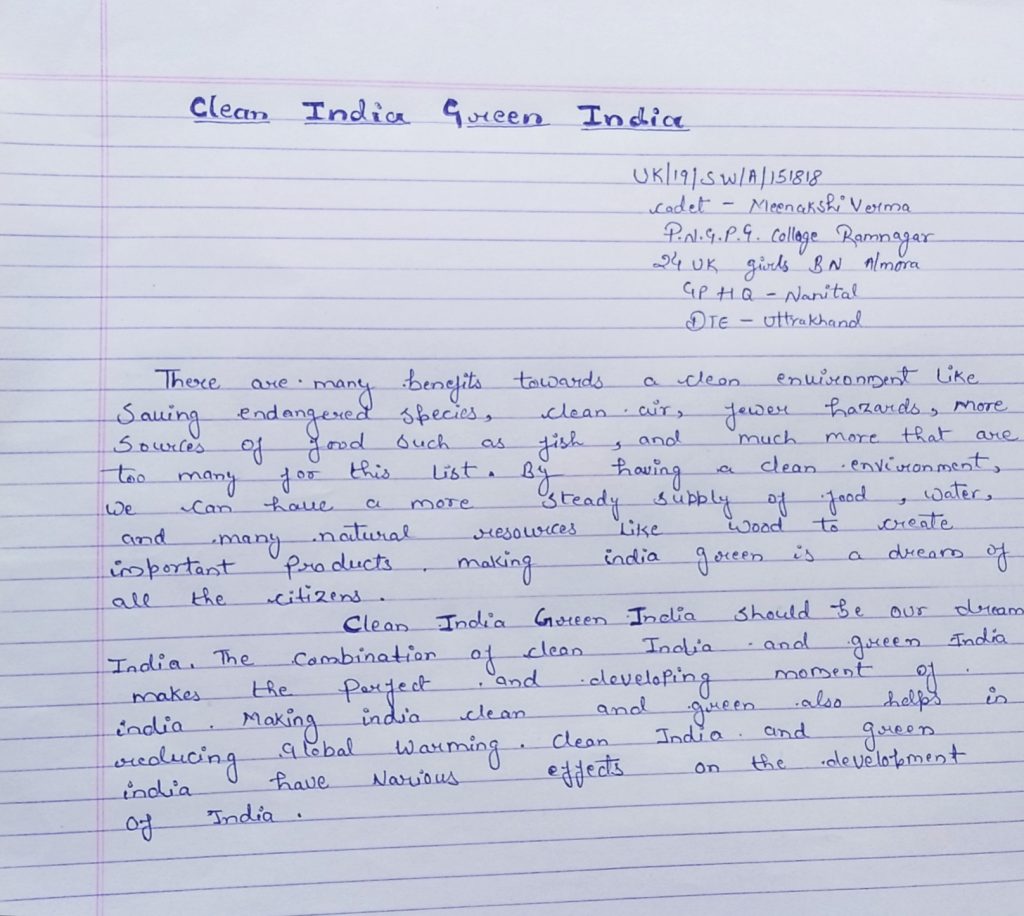 Clean India Green India
UK/19/SW/A/151818
cadet - Meenakshi Verma
P.N.G.P.G. College Ramnagar
24 UK girls BN Almora
GP HQ - Nanital
DTE - Uttrakhand
There are many benefits towards a clean environment like
Saving endangered species, clean air, fewer hazards, more
Sources of food such as fish, and much more that are
too many for this list. By having a clean environment,
We can have a more steady supply of food, water,
and many natural resources like wood to create
important products. making india green is a dream of
all the citizens.
Clean India Green India should be our dream
India. The combination of clean India and green India
makes the perfect and developing moment of
india. Making india clean and green also helps in
reducing Global Warming. Clean India and green
india have Various effects on the development
of India.